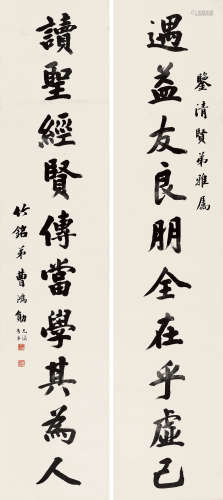 遇益友良朋全在乎虛己
鑒清賢弟雅屬
讀聖經賢傳當學其為人
竹銘弟曹鴻勛